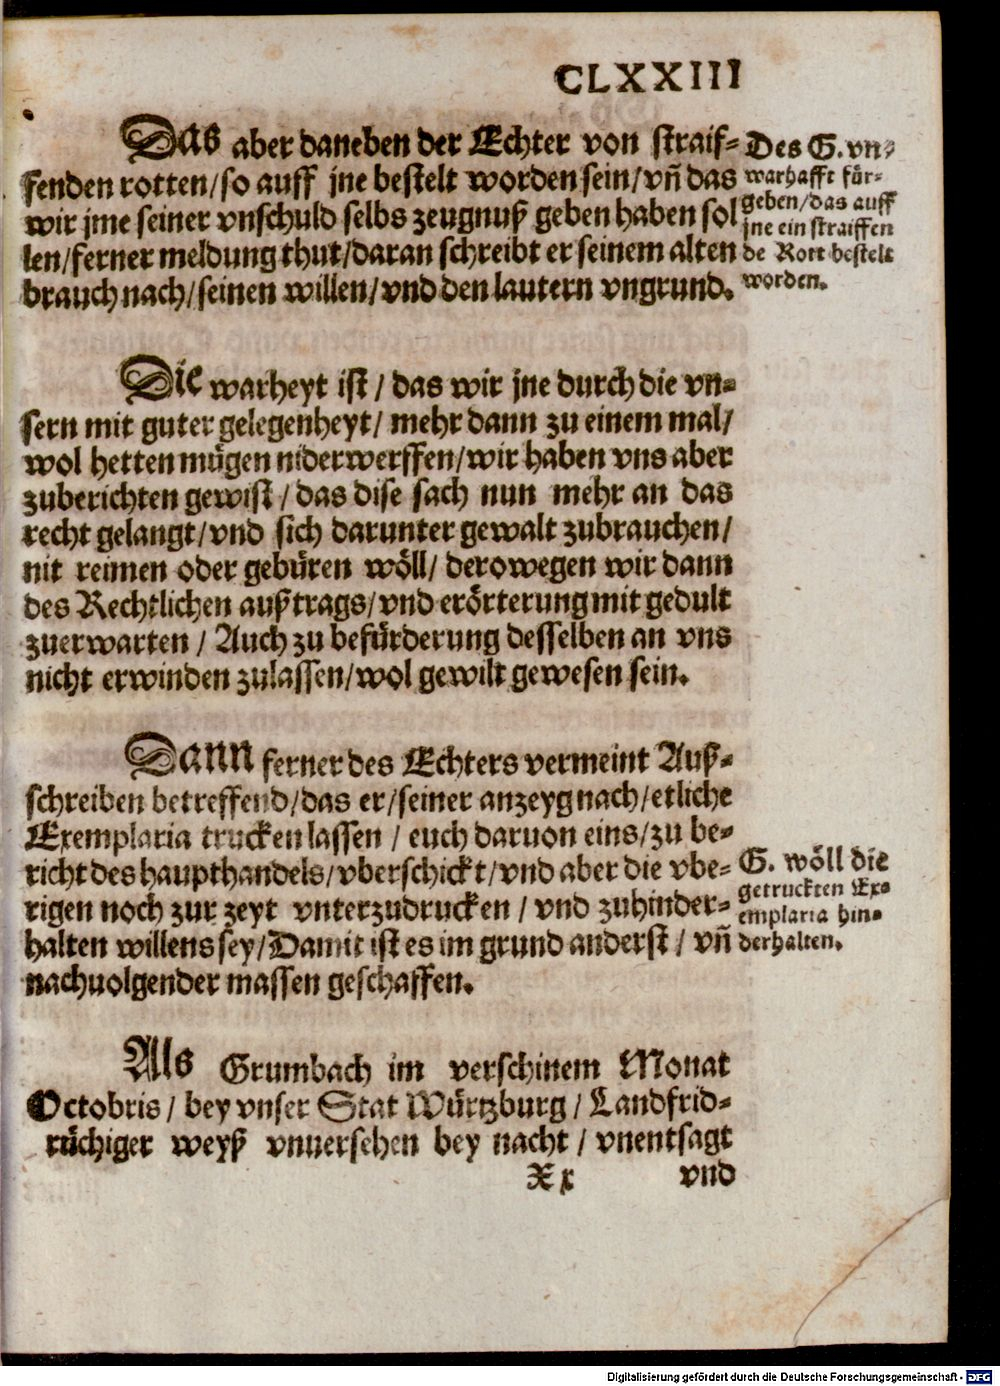 CLXXIII
Das aber daneben der Echter von straif-
fenden rotten/so auff jne bestelt worden sein/vñ das
wir jme seiner vnschuld selbs zeugnuß geben haben sol
len/ferner meldung thut/daran schreibt er seinem alten
brauch nach/seinen willen/vnd den lautern vngrund.
Des G. vn-
warhafft für-
geben/das auff
jne ein straiffen
de Rott bestelt
worden.
Die warheyt ist/das wir jne durch die vn-
sern mit guter gelegenheyt/mehr dann zu einem mal/
wol hetten mügen niderwerffen/wir haben vns aber
zuberichten gewist/das dise sach nun mehr an das
recht gelangt/vnd sich darunter gewalt zubrauchen/
nit reimen oder gebüren wöll/derowegen wir dann
des Rechtlichen außtrags/vnd erörterung mit gedult
zuerwarten/Auch zu befürderung desselben an vns
nicht erwinden zulassen/wol gewilt gewesen sein.
Dann ferner des Echters vermeint Auß-
schreiben betreffend/das er/seiner anzeyg nach/etliche
Exemplaria trucken lassen/euch daruon eins/zu be-
richt des haupthandels/vberschickt/vnd aber die vbe-
rigen noch zur zeyt vnterzudrucken/vnd zuhinder-
halten willens sey/Damit ist es im grund anderst/vñ
nachuolgender massen geschaffen.
G. wöll die
getruckten Ex-
emplaria hin-
derhalten.
Als Grumbach im verschinem Monat
Octobris/bey vnser Stat Würtzburg/Landfrid-
rüchiger weyß vnuersehen bey nacht/vnentsagt
Xx vnd
Digitalisierung gefördert durch die Deutsche Forschungsgemeinschaft - DFG